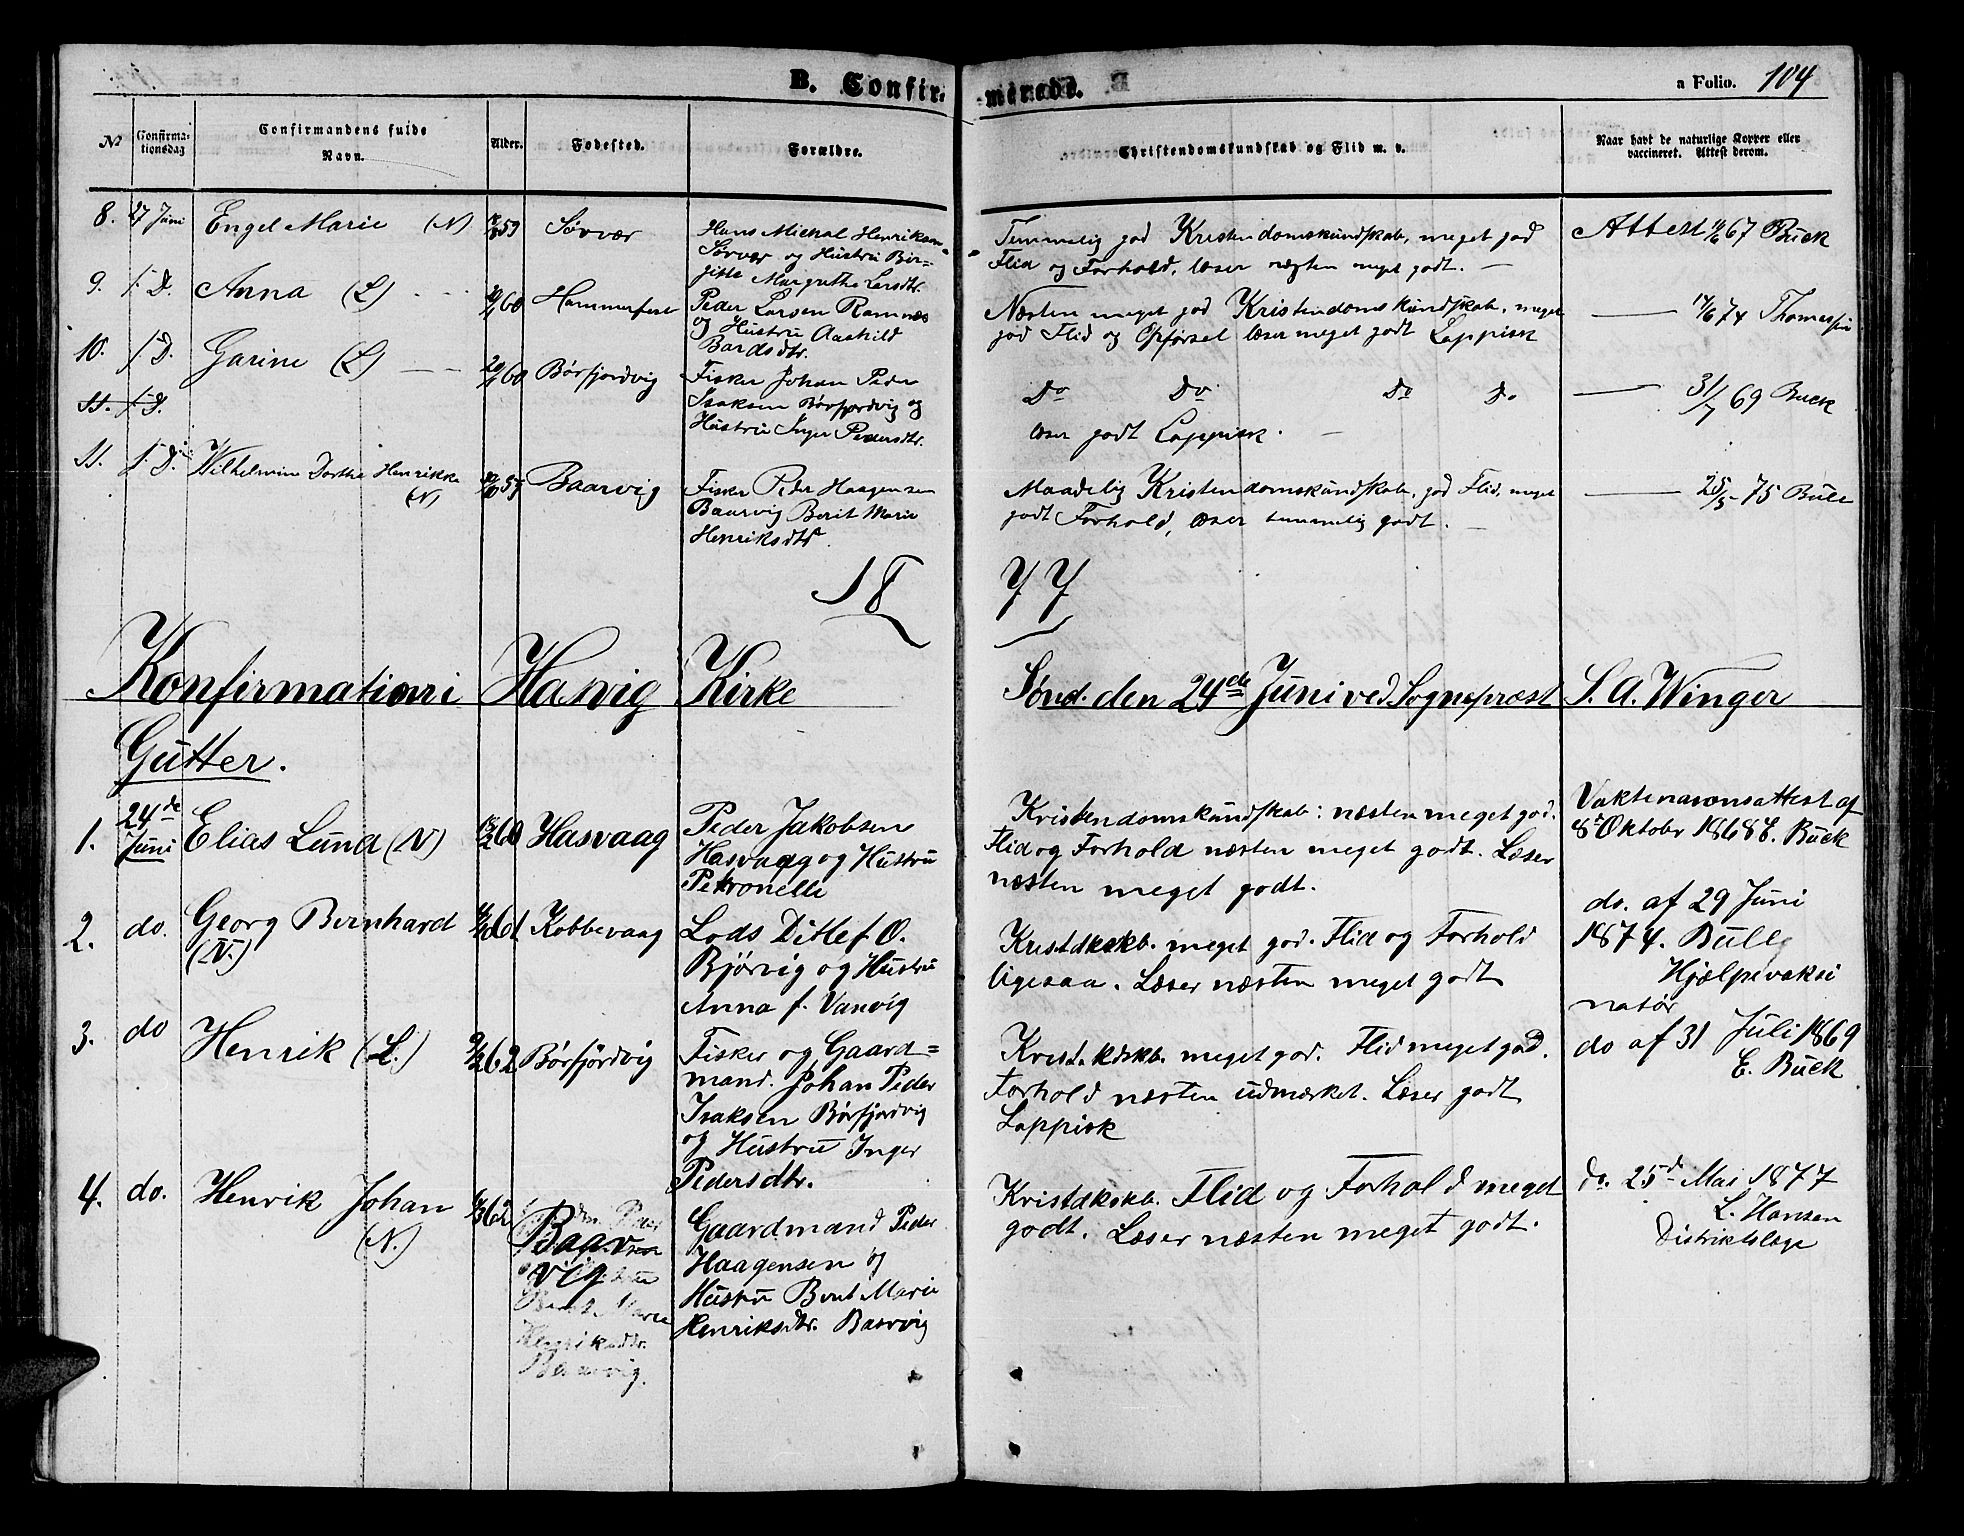 B. Confir-
merede.
a Folio. 104
No
Confirma-
tionsdag
Confirmandens fulde
Navn.
Alder.
Fødested.
Forældre.
Christendomskundskab og Flid m. v.
Naar havt de naturlige Kopper eller
vaccineret. Attest derom.
8. 27 Juni Engel Marie (N) 59 Sørvær
Hans Mickal Henriksen
Sørvær og Hustru Bir=
gitte Margrethe Larsdtr.
Temmelig god Kristendomskundskab, meget god
Flid og Forhold, læser næsten meget godt. —
Attest 67 Buck
9. D. Anna (L) 60 Hammerfest
Peder Larsen Ramnæs
og Hustru Aashild
Bardsdtr.
Næsten meget god Kristendomskundskab, meget
god Flid og Opførsel læser meget godt Lappisk
— 14/6 74 Thomassen
10. D. Garine (L) — 60 Børfjordvig
Fisker Johan Peder
Isaksen Børfjordvig og
Hustru Inger Pedersdtr.
Do Do Do Do
læser godt Lappisk. —
— 31/7 69 Buck
11. D.
11. D. Wilhelmine Dorthe Henrikke
(N)
57 Baarvig
Fisker Peder Haagensen
Baarvig Berit Marie
Henriksdtr.
Maadelig Kristendomskundskab, god Flid, meget
godt Forhold, læser temmelig godt. —
— 25/5 - 75 Bull
18 77
Konfirmation i Hasvig Kirke Sønd. den 24de Juni ved Sognepræst S. A. Winger
Gutter.
1. 24de
Juni
Elias Lund (N) 60 Hasvaag
Peder Jakobsen
Hasvaag og Hustru
Petronelle
Kristendomskundskab: næsten meget god.
Flid og Forhold næsten meget godt. Læser
næsten meget godt.
Vaksinasonsattest af
8 Oktobr 1868 E. Buck
2. do. Georg Bernhard
(N.)
61 Kobbevaag
Lods Ditlef O.
Bjørvig og Hustru
Anna f. Vanvig
Kristdkskb. meget god. Flid og Forhold
ligesaa. Læser næsten meget godt
do. af 29 Juni
1874. Bull
Hjælpevaksi
natør
3. do Henrik (L.) 62 Børfjordvig
Fisker og Gaard=
mand. Johan Peder
Isaksen Børfjordvig
og Hustru Inger
Pedersdtr.
Krist.kdskb. meget god. Flid meget god.
Forhold næsten udmærket. Læser godt
Lappisk
do af 31 Juli 1869
E. Buck
4. do. Henrik Johan
(N.)
62 Baar
vig
Marie
Henriksdtr.
Baarvig.
Gaardmand Peder
Haagensen og
Hustru Berit Marie
Henriksdtr. Baarvig
Kristdkskb. Flid og Forhold meget
godt. Læser næsten meget godt.
do. 25d Mai 1877
L. Hansen
Distriktslæge